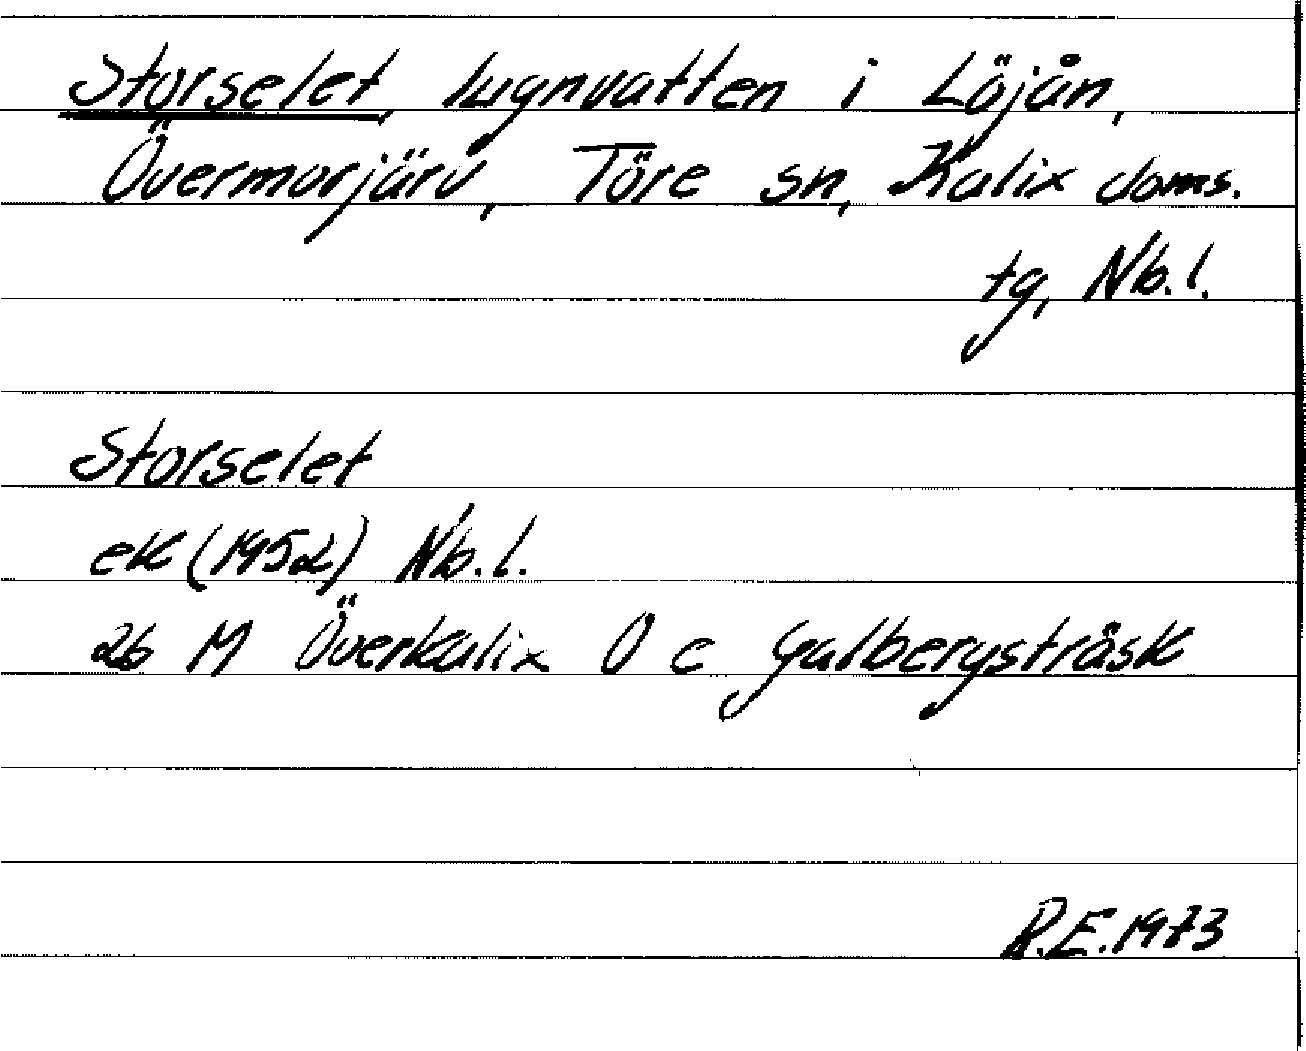 Storselet, lugnvatten i Löjån,
Övermorjärv, Töre sn, Kalix doms.
tg, Nb.l.
Storselet
ek (1952) Nb.l.
26 M Överkalix Ö c Galbergsträsk
R.E. 1973